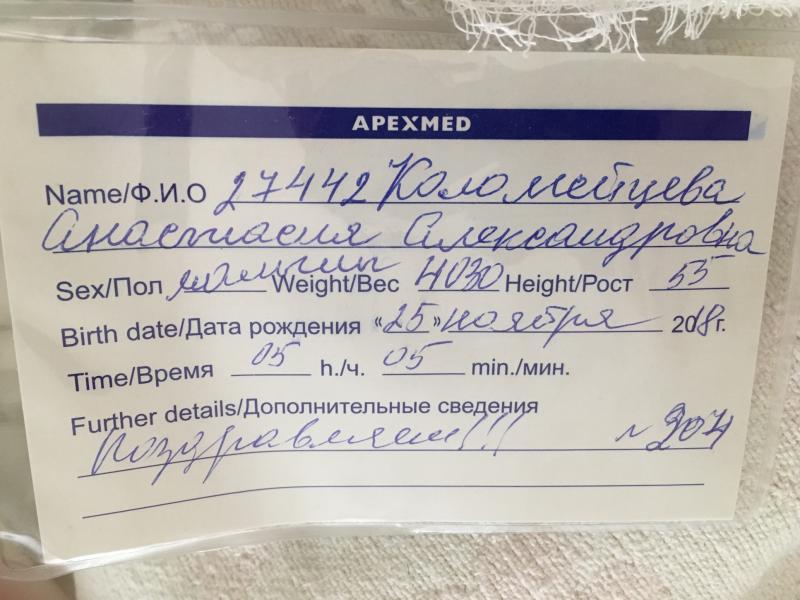 APEXMED
Name/Ф.И.О 27442 Коломейцева
Анастасия Александровна
Sex/Пол мальчик Weight/Вес 4030 Height/Рост 55
Birth date/Дата рождения «25» ноября 2018г.
Time/Время 05 h./ч. 05 min./мин.
Further details/Дополнительные сведения
Поздравляем!!! 204